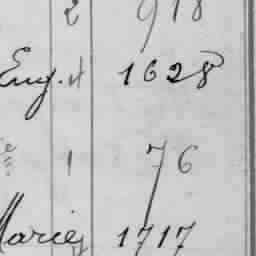 2 918
Eug. 4 1628
1 76
Marie 1717